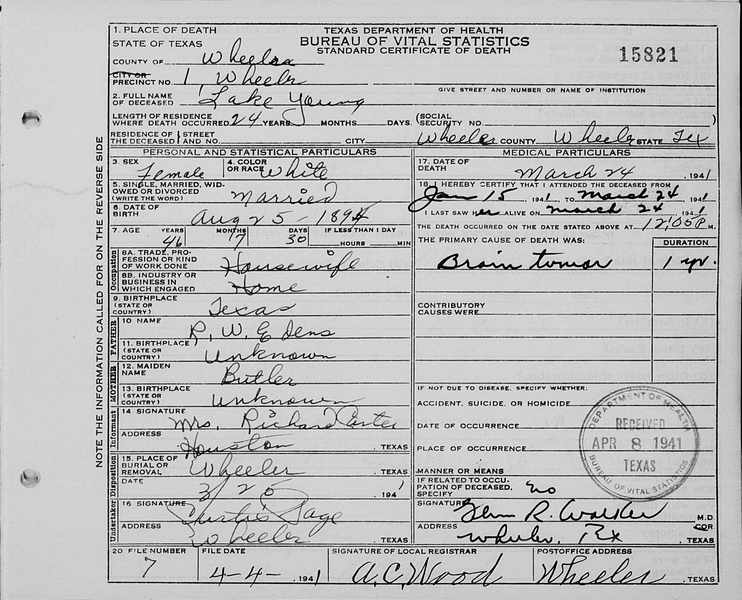 1. PLACE OF DEATH
STATE OF TEXAS
TEXAS DEPARTMENT OF HEALTH
BUREAU OF VITAL STATISTICS
STANDARD CERTIFICATE OF DEATH
15821
COUNTY OF Wheeler
CITY OR
PRECINCT NO. 1 Wheeler
GIVE STREET AND NUMBER OR NAME OF INSTITUTION
2. FULL NAME
OF DECEASED Lake Young
LENGTH OF RESIDENCE
WHERE DEATH OCCURRED 24 YEARS MONTHS DAYS. (SOCIAL SECURITY NO.
RESIDENCE OF THE DECEASED STREET AND NO. CITY Wheeler COUNTY Wheeler STATE Tex
PERSONAL AND STATISTICAL PARTICULARS
3. SEX
Female
4. COLOR
OR RACE White
5. SINGLE, MARRIED, WID-
OWED OR DIVORCED
(WRITE THE WORD) Married
6. DATE OF
BIRTH Aug 25 - 1894
7. AGE YEARS MONTHS DAYS IF LESS THAN 1 DAY
46 17 30 HOURS MIN
Occupation
8A. TRADE, PRO-
FESSION OR KIND
OF WORK DONE Housewife
8B. INDUSTRY OR
BUSINESS IN
WHICH ENGAGED Home
9. BIRTHPLACE
(STATE OR
COUNTRY) Texas
FATHER
10 NAME R. W. Edens
11. BIRTHPLACE
(STATE OR
COUNTRY) Unknown
MOTHER
12. MAIDEN
NAME Butler
13. BIRTHPLACE
(STATE OR
COUNTRY) Unknown
Informant
14 SIGNATURE Mrs. Richard Carter
ADDRESS Houston, TEXAS
Disposition
15. PLACE OF
BURIAL OR
REMOVAL Wheeler, TEXAS
DATE 3/25 194 1
Undertaker
16 SIGNATURE Curtis Page
ADDRESS Wheeler TEXAS
MEDICAL PARTICULARS
17. DATE OF
DEATH March 24 , 1941
18. I HEREBY CERTIFY THAT I ATTENDED THE DECEASED FROM
Jan 15 , 1941 TO March 24 1941
I LAST SAW HER ALIVE ON March 24 1941
THE DEATH OCCURRED ON THE DATE STATED ABOVE AT 12:05 P M.
THE PRIMARY CAUSE OF DEATH WAS: DURATION
Brain tumor 1 yr.
CONTRIBUTORY
CAUSES WERE:
IF NOT DUE TO DISEASE, SPECIFY WHETHER:
ACCIDENT, SUICIDE, OR HOMICIDE
DATE OF OCCURRENCE
PLACE OF OCCURRENCE
MANNER OR MEANS
IF RELATED TO OCCU-
PATION OF DECEASED,
SPECIFY no
SIGNATURE Glenn R. Walker M.D.
COR
ADDRESS Wheeler, Tex TEXAS
DEPARTMENT OF HEALTH
RECEIVED
APR 8 1941
TEXAS
BUREAU OF VITAL STATISTICS
20 FILE NUMBER FILE DATE SIGNATURE OF LOCAL REGISTRAR POSTOFFICE ADDRESS
7 4-4- , 1941 A.C. Wood Wheeler , TEXAS
NOTE THE INFORMATION CALLED FOR ON THE REVERSE SIDE